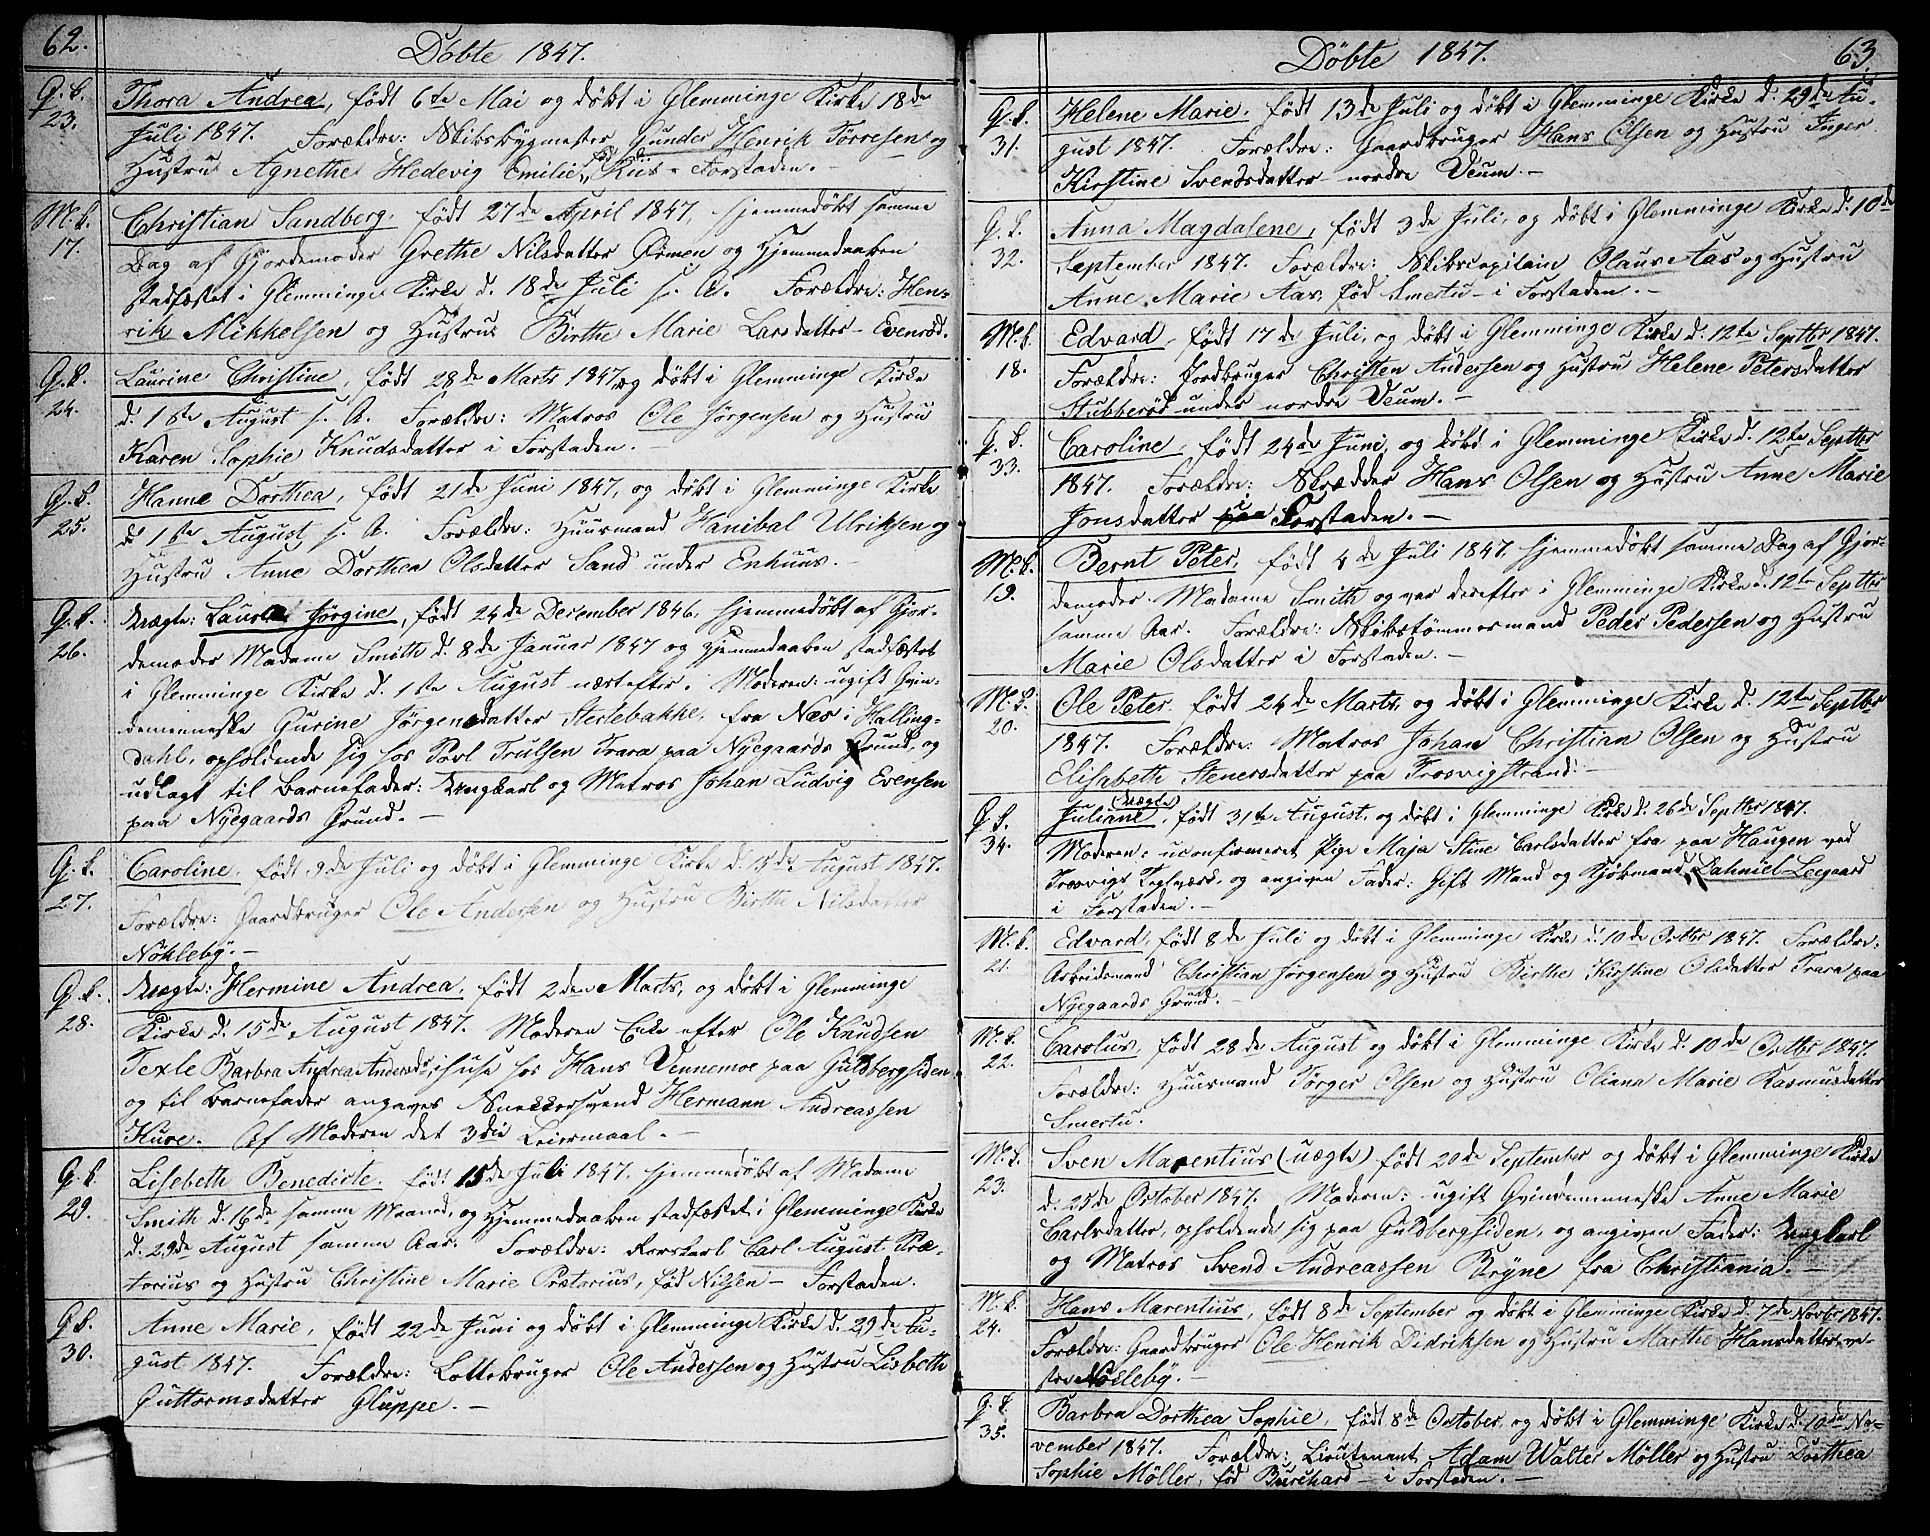 62.
Døbte 1847.
P. b. 23. Thora Andrea, født 6te Mai og døbt i Glemminge Kirke 18de
Juli 1847. Forældre: Skibsbygmester Gunder Henrik Torresen og
Hustru Agnethe Hedevig Emilie fd Riis - Forstaden.
M. b. 17. Christian Sandberg, født 27de April 1847, hjemmedøbt samme
Dag af Gjordemoder Grethe Nilsdatter Ørmen og Hjemmedaaben
stadfæstet i Glemminge Kirke d. 18de Juli s. A. Forældre: Hen-
rik Mikkelsen og Hustru Birthe Marie Larsdatter - Evenrød.
P. b. 24. Laurine Christine, født 28de Marts 1847, og døbt i Glemminge Kirke
d. 1ste August s. A. Forældre: Matros Ole Jørgensen og Hustru
Karen Sophie Knudsdatter i Forstaden.
P. b. 25. Hanne Dorthea, født 21de Juni 1847, og døbt i Glemminge Kirke
d. 1ste August s. A. Forældre: Huusmand Hanibal Ulriksen og
Hustru Anne Dorthea Olsdatter Sand under Enhuus.
P. b. 26. Uægte: Laura Jørgine, født 24de December 1846, hjemmedøbt af Gjor-
demoder Madame Smith d. 8de Januar 1847 og Hjemmedaaben stadfæstet
i Glemminge Kirke d. 1ste August næstefter. Moderen: ugift Qvin-
demenneske Gurine Jørgensdatter Stertebakke, fra Næs i Halling-
dahl, opholdende sig hos Povl Trulsen Trara paa Nyegaards Grund, og
udlagt til Barnefader: Ungkarl og Matros Johan Ludvig Evensen
paa Nyegaards Grund.
P. b. 27. Caroline, født 9de Juli og døbt i Glemminge Kirke d. 15de August 1847.
Forældre: Gaardbruger Ole Andersen og Hustru Birthe Nilsdatter
Nökleby.
P. b. 28. Uægte: Hermine Andrea, født 2den Marts, og døbt i Glemminge
Kirke d. 15de August 1847. Moderen Enke efter Ole Knudsen
Texle Barbra Andrea Andersdr, i huse hos Hans Vennemoe paa Guldbergsiden
og til Barnefader angaves Snekkersvend Hermann Andreassen
Kure. Af Moderen det 3die Leiermaal.
P. b. 29. Lisebeth Benedicte, født 15de Juli 1847. hjemmedøbt af Madame
Smith d. 16de samme Maaned, og Hjemmedaaben stadfæstet i Glemminge Kirke
d. 29de August samme Aar. Forældre: Rorskarl Carl August Præ-
torius og Hustru Christine Marie Prætorius, fød Nilsen - Forstaden.
P. b. 30. Anne Marie, født 22de Juni og døbt i Glemminge Kirke d. 29de Au-
gust 1847. Forældre: Lottebruger Ole Andersen og Hustru Lisbeth
Guttormsdatter Gluppe.
63.
Döbte 1847.
P. b. 31. Helene Marie, født 13de Juli og døbt i Glemminge Kirke d. 29de Au-
gust 1847. Forældre: Gaardbruger Hans Olsen og Hustru Inger
Kirstine Svendsdatter nordre Veum.
P. b. 32. Anna Magdalene, født 3de Juli, og døbt i Glemminge Kirke d. 10de
September 1847. Forældre: Skibscapitain Olaus Aas og Hustru
Anne Marie Aas, fød Smertu - i Forstaden.
M. b. 18. Edvard, født 17de Juli, og døbt i Glemminge Kirke d. 12te Septbr 1847.
Forældre: Jordbruger Christen Andersen og Hustru Helene Petersdatter
Stubberød under nordre Veum.
P. b. 33. Caroline, født 24de Juni, og døbt i Glemminge Kirke d. 12te Septbr
1847. Forældre: Skrædder Hans Olsen og Hustru Anne Marie
Jonsdatter i Forstaden.
M. b. 19. Bernt Peter, født 4de Juli 1847. hjemmedøbt samme Dag af Gjor-
demoder Madame Smith og var derefter i Glemminge Kirke d. 12te Septbr
samme Aar. Forældre: Skibstömmermand Peder Pedersen og Hustru
Marie Olsdatter i Forstaden.
M. b. 20. Ole Peter, født 24de Marts, og døbt i Glemminge Kirke d. 12te Septbr
1847. Forældre: Matros Johan Christian Olsen og Hustru
Elisabeth Stenersdatter paa Trosvigstrand.
P. b. 34. Juliane (uægte), født 31te August, og døbt i Glemminge Kirke d. 26de Septbr 1847.
Moderen: uconfirmeret Pige Maja Stine Carlsdatter fra paa Haugen ved
Trosvigs Teglværk, og angiven Fader: Gift Mand og Kjøbmand Dahniel Leegaard
i Forstaden.
M. b. 21. Edvard, født 8de Juli og døbt i Glemminge Kirke d. 10de Octbr 1847. Forældre:
Arbeidsmand Christian Jørgensen og Hustru Birthe Kirstine Olsdatter Trara paa
Nyegaards Grund.
M. b. 22. Carolus, født 28de August og døbt i Glemminge Kirke d. 10de Octbr 1847.
Forældre: Huusmand Törger Olsen og Hustru Oliana Marie Rasmusdatter
Smertu.
M. b. 23. Sven Marentius (uægte) født 20de September og døbt i Glemminge Kirke
d. 25de October 1847. Moderen: ugift Qvindemenneske Anne Marie
Carlsdatter, opholdende sig paa Guldbergsiden, og angiven Fader: Ungkarl
og Matros Svend Andreassen Bryne fra Christiania.
M. b. 24. Hans Marentius, født 8de September og døbt i Glemminge Kirke d. 7de Novbr 1847.
Forældre: Gaardbruger Ole Henrik Didriksen og Hustru Marthe Hansdatter, ve-
stre Nöcleby.
P. b. 35. Barbra Dorthea Sophie, født 8de October, og døbt i Glemminge Kirke d. 10de No-
vember 1847. Forældre: Lieutenant Adam Walter Möller og Hustru Dorthea
Sophie Möller, fød Burchard - i Forstaden.